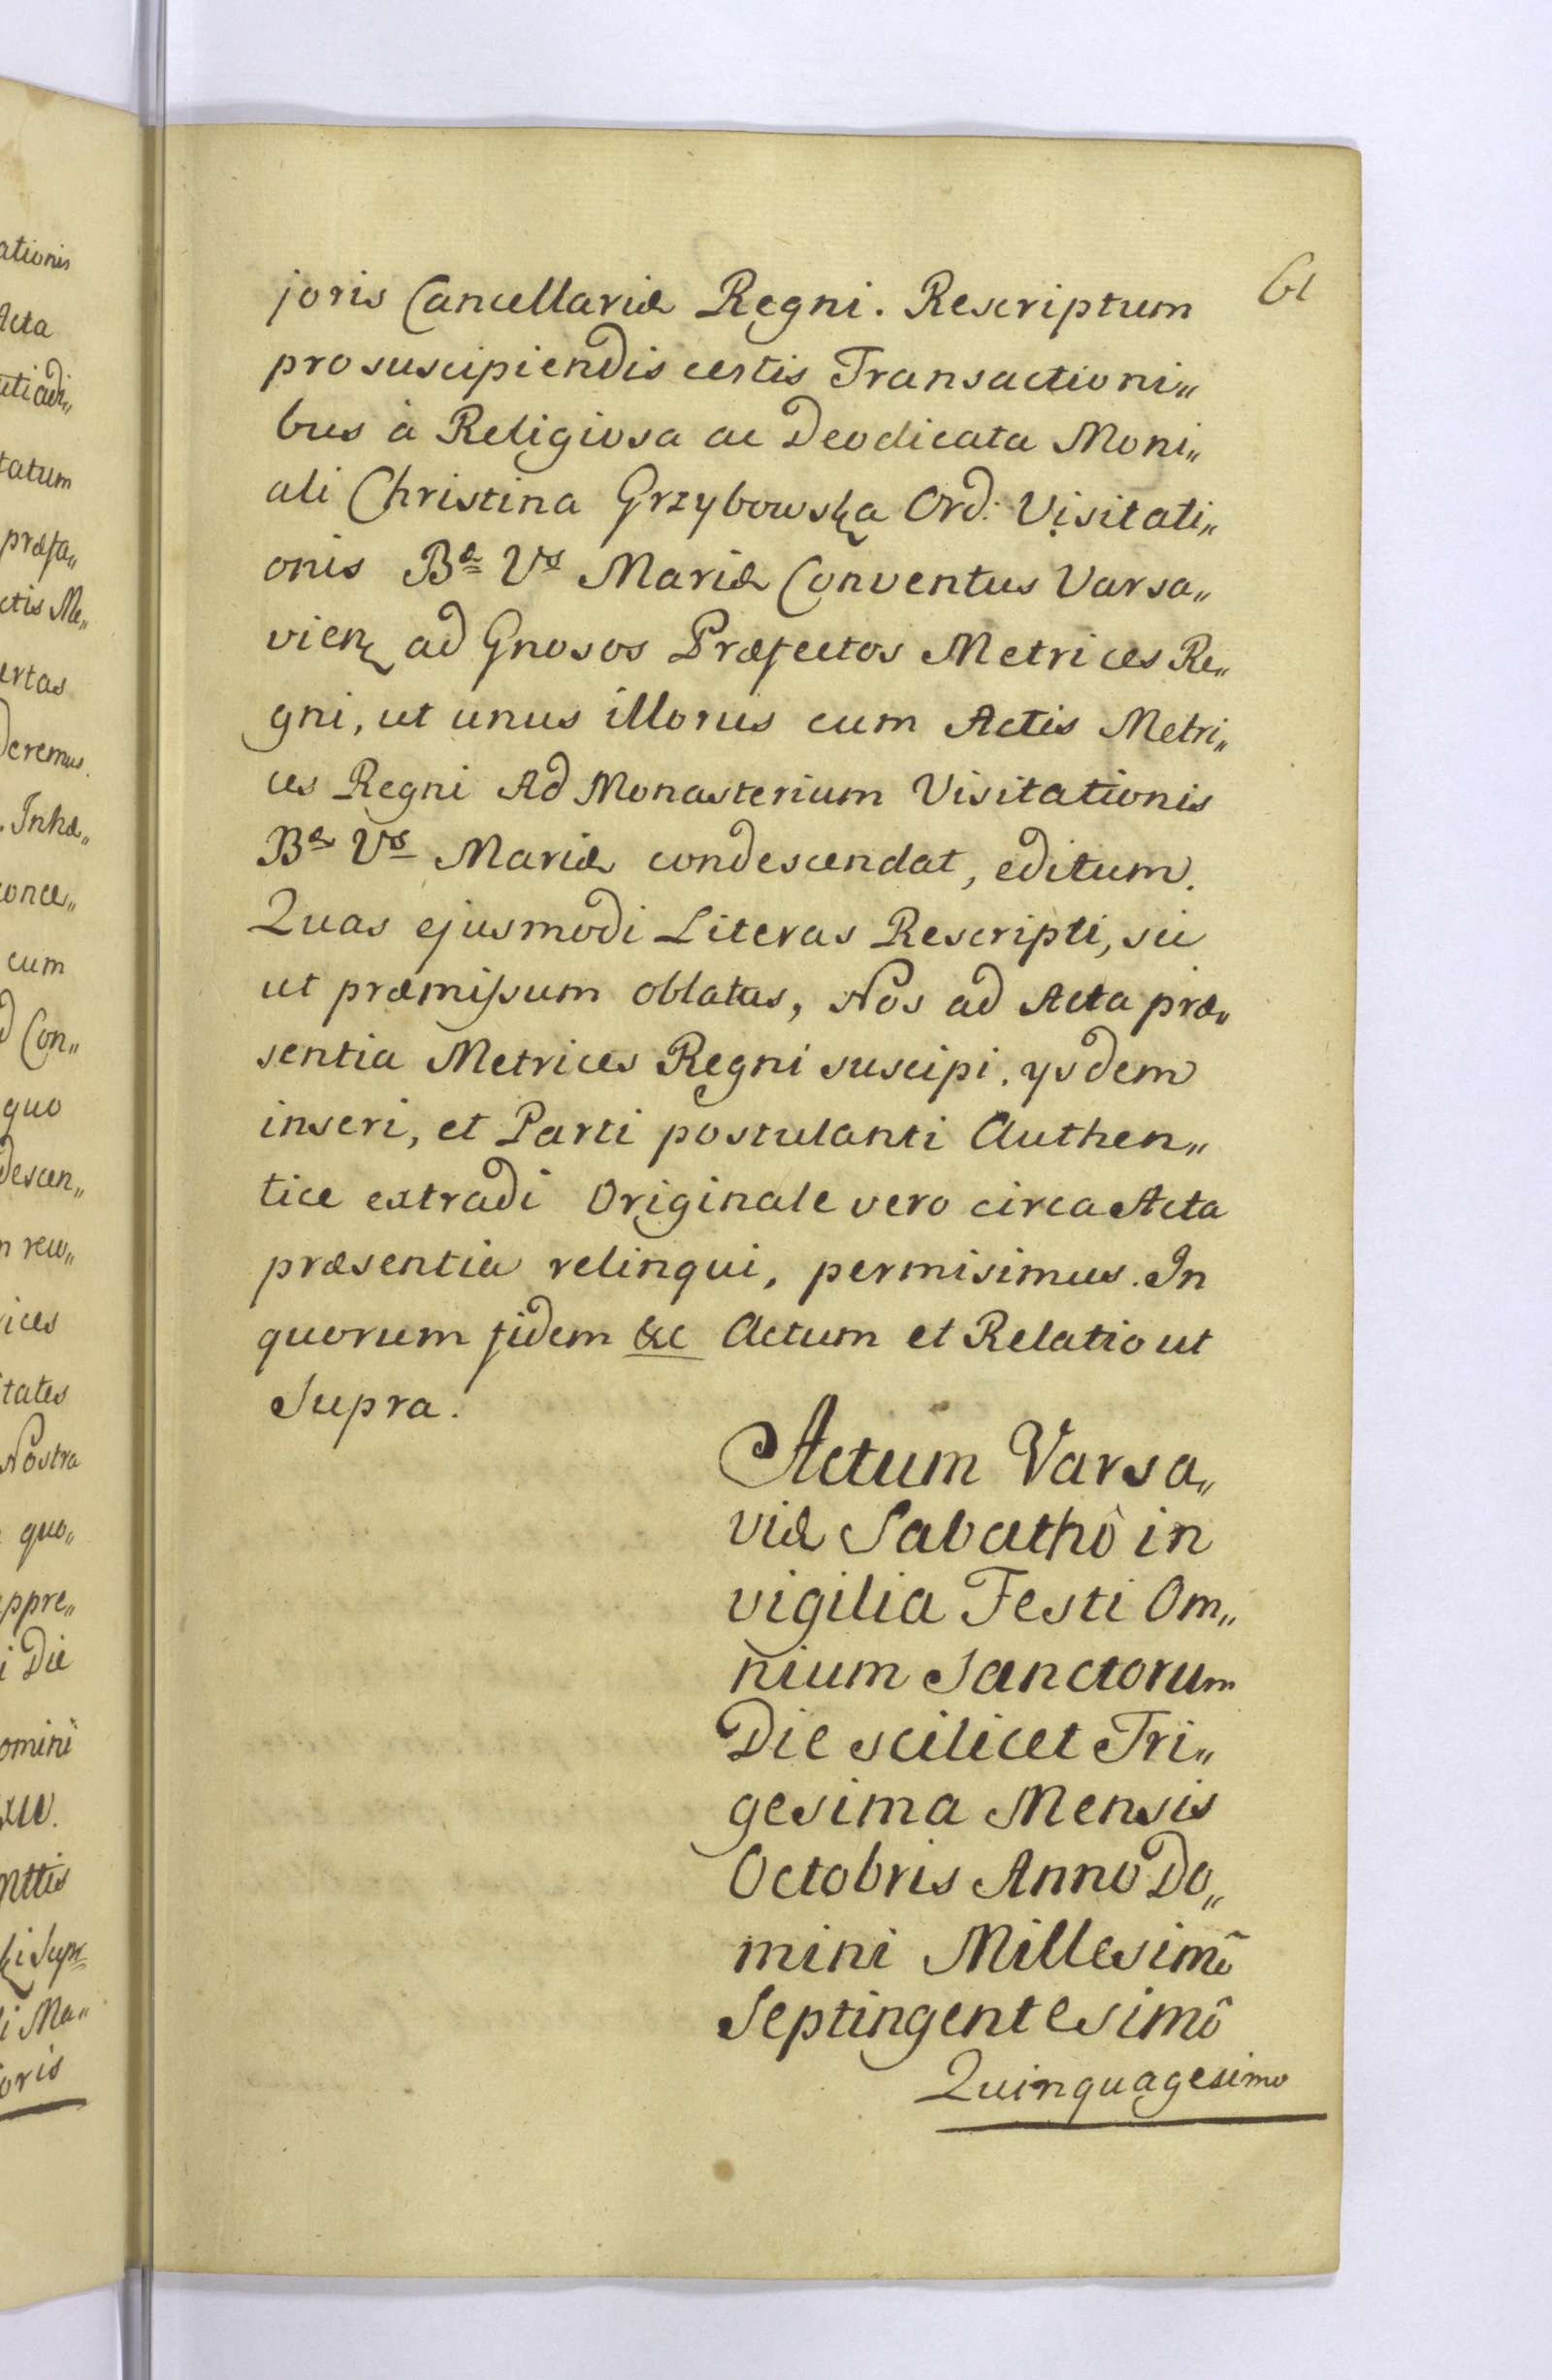 61
joris Cancellariæ Regni. Rescriptum
pro suscipiendis certis Transactioni„
bus à Religiosa ac Deodicata Moni„
ali Christina Grzybowska Ord: Visitati„
onis Bæ Vs Mariæ Conventus Varsa„
vien ad Gnosos Præfectos Metrices Re„
gni, ut unus illorus cum Actis Metri„
ces Regni Ad Monasterium Visitationis
Bæ Vs Mariæ condescendat, editum.
Quas ejusmodi Literas Rescripti, sic
ut præmissum oblatas, Nos ad Acta præ„
sentia Metrices Regni suscipi. ysdem
inseri, et Parti postulanti Authen„
tice extradi Originale vero circa Acta
præsentia relinqui, permisimus. In
quorum fidem &c Actum et Relatio ut
Supra.
Actum Varsa„
viæ Sabathô in
vigilia Festi Om„
nium Sanctorum
Die scilicet Tri„
gesima Mensis
Octobris Anno Do„
mini Millesimô
Septingentesimô
Quinquagesimo
ationis
Acta
tatum
præfa„
ctis Me„
ertas
deremus.
Inhæ„
conce„
cum
d Con„
quo
descen„
rices
tates
Nostra
quo„
appre„
i Die
omini
i Ma„
oris